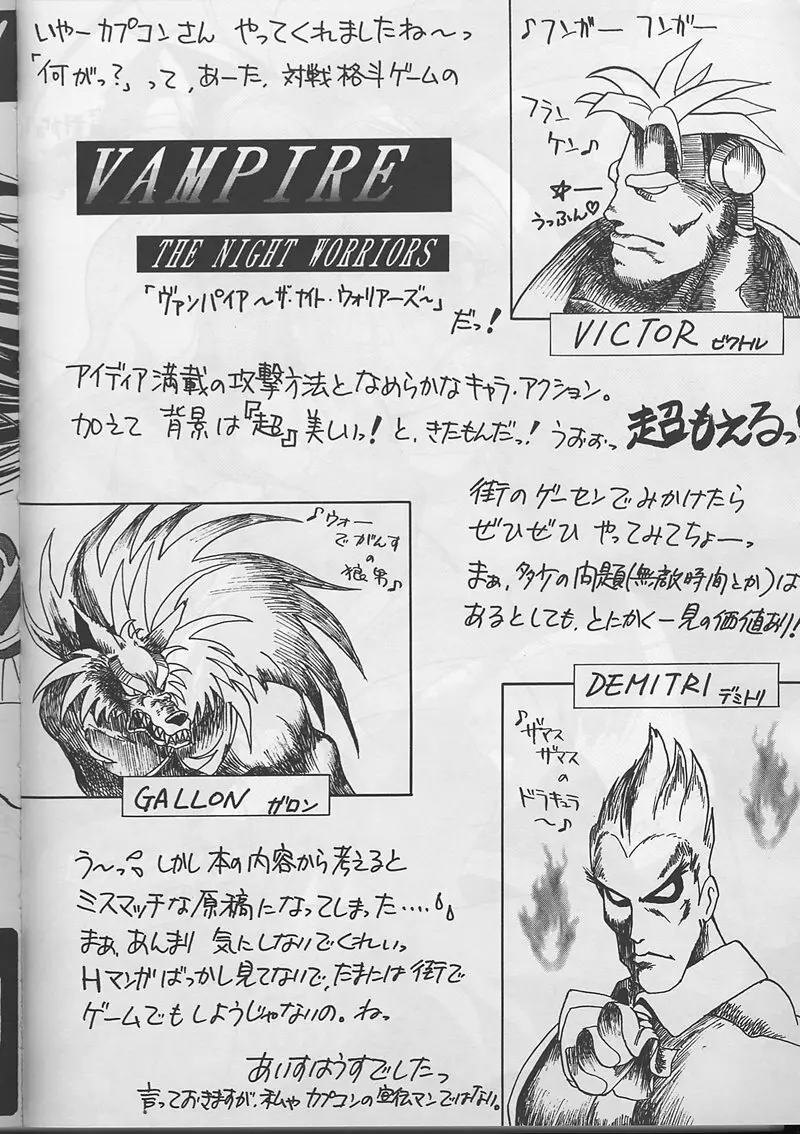 いやーカプコンさん やってくれましたね〜っ
「何がっ?」って,あーた,対戦格斗ゲームの
VAMPIRE
THE NIGHT WORRIORS
「ヴァンパイア〜ザ・ナイト・ウォリアーズ〜」
だっ!
♪フンガー フンガー
フラン
ケン♪
☆ー
うっふん♡
VICTOR ビクトル
アイディア満載の攻撃方法となめらかなキャラ・アクション。
加えて 背景は『超』美しいっ! と,きたもんだっ! うおぉっ 超もえるっ!!
街のゲーセンでみかけたら
ぜひぜひ やってみてちょーっ
まぁ,多々の問題(無敵時間とか)は
あるとしても,とにかく一見の価値あり!
♪ウォー
でがんす
の
狼男♪
GALLON ガロン
DEMITRI デミトリ
♪ザマス
ザマス
の
ドラキュラ
〜♪
う〜っ。しかし本の内容から考えると
ミスマッチな原稿になってしまった....
まぁ,あんまり 気にしないでくれいっ
Hマンガばっかし見てないで,たまには街で
ゲームでもしようじゃないの。ねっ
あいすはうすでしたっ
言っておきますが,私ゃカプコンの宣伝マンではない。